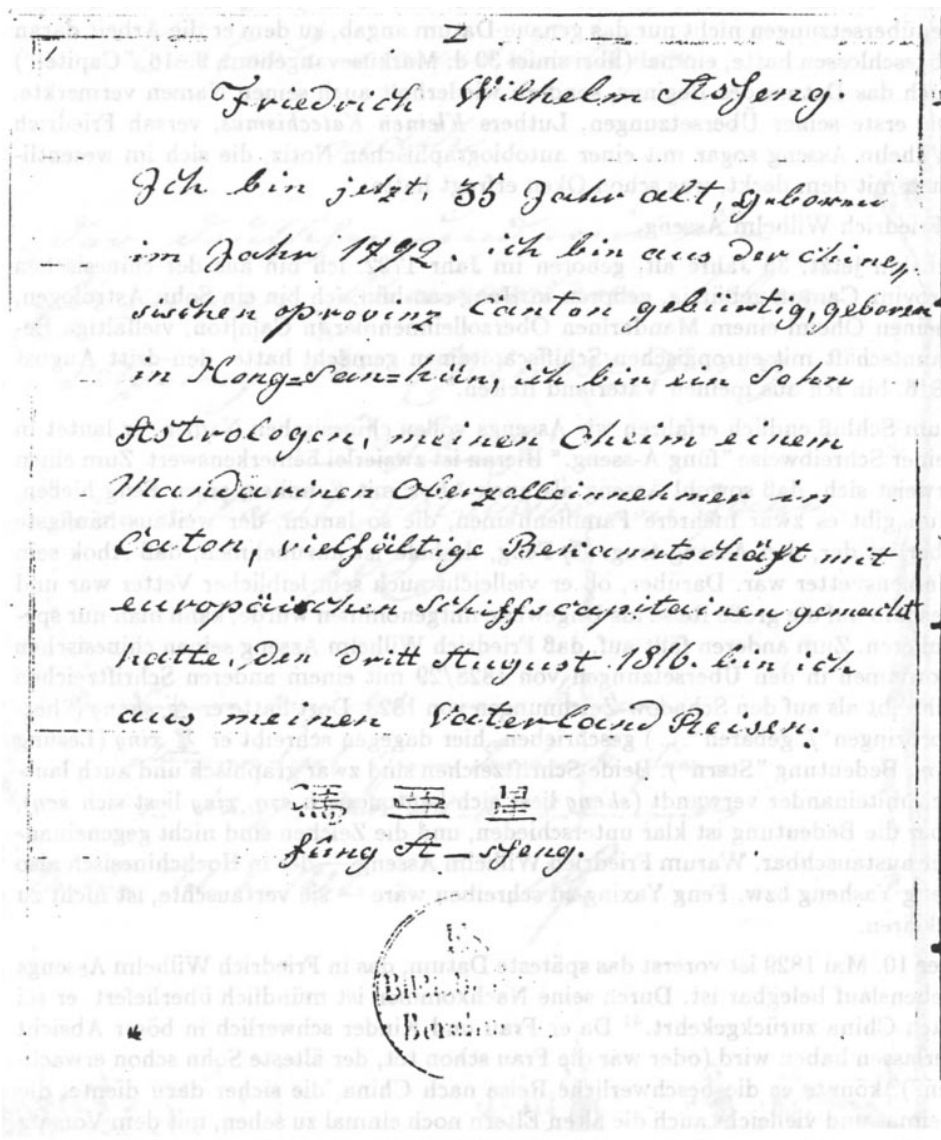 Friedrich Wilhelm Asseng.
Ich bin jetzt, 35 Jahr alt, geboren
im Jahr 1792. ich bin aus der chines-
sischen Provinz Canton gebürtig, geboren
in Hong=San=hün, ich bin ein Sohn
Astrologen meinen Oheim einem
Mandarinen Oberzolleinnehmer in
Caton, vielfältig Bekanntschaft mit
europäischen Schiffscapitainen gemacht
hatte, den dritt August 1816. bin ich
aus meinen Vaterland Reisen.
馮 亞 星
Fung A-sseng.